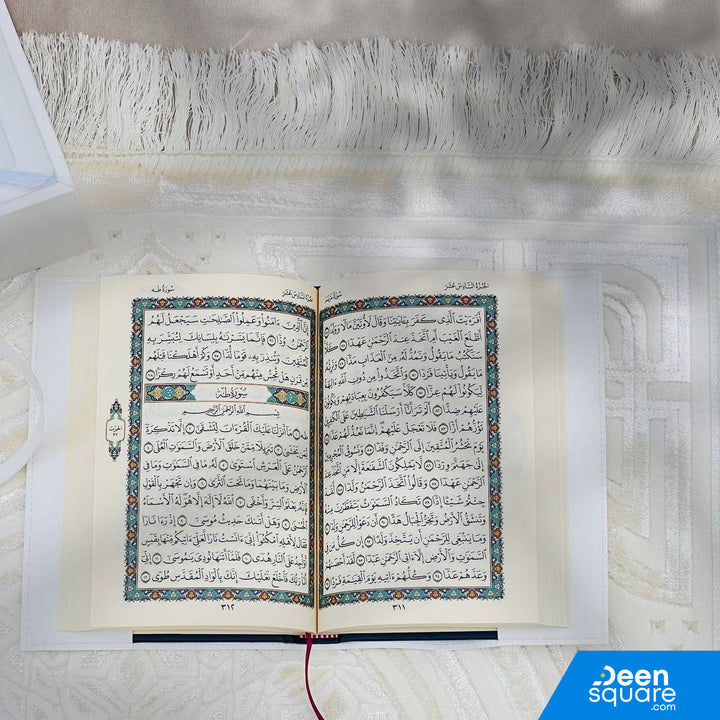 الجُزْءُ السَّادِسَ عَشَرَ
سُورَةُ مَرْيَمَ
أَفَرَءَيْتَ ٱلَّذِى كَفَرَ بِـَٔايَـٰتِنَا وَقَالَ لَأُوتَيَنَّ مَالًا وَوَلَدًا ٧٧
أَطَّلَعَ ٱلْغَيْبَ أَمِ ٱتَّخَذَ عِندَ ٱلرَّحْمَـٰنِ عَهْدًا ٧٨ كَلَّا
سَنَكْتُبُ مَا يَقُولُ وَنَمُدُّ لَهُۥ مِنَ ٱلْعَذَابِ مَدًّا ٧٩ وَنَرِثُهُۥ
مَا يَقُولُ وَيَأْتِينَا فَرْدًا ٨٠ وَٱتَّخَذُوا۟ مِن دُونِ ٱللَّهِ ءَالِهَةً
لِّيَكُونُوا۟ لَهُمْ عِزًّا ٨١ كَلَّا سَيَكْفُرُونَ بِعِبَادَتِهِمْ وَيَكُونُونَ
عَلَيْهِمْ ضِدًّا ٨٢ أَلَمْ تَرَ أَنَّآ أَرْسَلْنَا ٱلشَّيَـٰطِينَ عَلَى ٱلْكَـٰفِرِينَ
تَؤُزُّهُمْ أَزًّا ٨٣ فَلَا تَعْجَلْ عَلَيْهِمْ إِنَّمَا نَعُدُّ لَهُمْ عَدًّا ٨٤
يَوْمَ نَحْشُرُ ٱلْمُتَّقِينَ إِلَى ٱلرَّحْمَـٰنِ وَفْدًا ٨٥ وَنَسُوقُ ٱلْمُجْرِمِينَ
إِلَىٰ جَهَنَّمَ وِرْدًا ٨٦ لَّا يَمْلِكُونَ ٱلشَّفَـٰعَةَ إِلَّا مَنِ ٱتَّخَذَ عِندَ
ٱلرَّحْمَـٰنِ عَهْدًا ٨٧ وَقَالُوا۟ ٱتَّخَذَ ٱلرَّحْمَـٰنُ وَلَدًا ٨٨ لَّقَدْ جِئْتُمْ
شَيْـًٔا إِدًّا ٨٩ تَكَادُ ٱلسَّمَـٰوَٰتُ يَتَفَطَّرْنَ مِنْهُ
وَتَنشَقُّ ٱلْأَرْضُ وَتَخِرُّ ٱلْجِبَالُ هَدًّا ٩٠ أَن دَعَوْا۟ لِلرَّحْمَـٰنِ وَلَدًا ٩١
وَمَا يَنۢبَغِى لِلرَّحْمَـٰنِ أَن يَتَّخِذَ وَلَدًا ٩٢ إِن كُلُّ مَن فِى
ٱلسَّمَـٰوَٰتِ وَٱلْأَرْضِ إِلَّآ ءَاتِى ٱلرَّحْمَـٰنِ عَبْدًا ٩٣ لَّقَدْ أَحْصَىٰهُمْ
وَعَدَّهُمْ عَدًّا ٩٤ وَكُلُّهُمْ ءَاتِيهِ يَوْمَ ٱلْقِيَـٰمَةِ فَرْدًا ٩٥
٣١١
الجُزْءُ السَّادِسَ عَشَرَ
سُورَةُ طه
إِنَّ ٱلَّذِينَ ءَامَنُوا۟ وَعَمِلُوا۟ ٱلصَّـٰلِحَـٰتِ سَيَجْعَلُ لَهُمُ
ٱلرَّحْمَـٰنُ وُدًّا ٩٦ فَإِنَّمَا يَسَّرْنَـٰهُ بِلِسَانِكَ لِتُبَشِّرَ بِهِ
ٱلْمُتَّقِينَ وَتُنذِرَ بِهِۦ قَوْمًا لُّدًّا ٩٧ وَكَمْ أَهْلَكْنَا قَبْلَهُم
مِّن قَرْنٍ هَلْ تُحِسُّ مِنْهُم مِّنْ أَحَدٍ أَوْ تَسْمَعُ لَهُمْ رِكْزًۢا ٩٨
سُورَةُ طه
بِسْمِ ٱللَّهِ ٱلرَّحْمَـٰنِ ٱلرَّحِيمِ
طه ١ مَآ أَنزَلْنَا عَلَيْكَ ٱلْقُرْءَانَ لِتَشْقَىٰٓ ٢ إِلَّا تَذْكِرَةً
لِّمَن يَخْشَىٰ ٣ تَنزِيلًا مِّمَّنْ خَلَقَ ٱلْأَرْضَ وَٱلسَّمَـٰوَٰتِ ٱلْعُلَى ٤
ٱلرَّحْمَـٰنُ عَلَى ٱلْعَرْشِ ٱسْتَوَىٰ ٥ لَهُۥ مَا فِى ٱلسَّمَـٰوَٰتِ وَمَا فِى
ٱلْأَرْضِ وَمَا بَيْنَهُمَا وَمَا تَحْتَ ٱلثَّرَىٰ ٦ وَإِن تَجْهَرْ بِٱلْقَوْلِ
فَإِنَّهُۥ يَعْلَمُ ٱلسِّرَّ وَأَخْفَى ٧ ٱللَّهُ لَآ إِلَـٰهَ إِلَّا هُوَ لَهُ ٱلْأَسْمَآءُ
ٱلْحُسْنَىٰ ٨ وَهَلْ أَتَىٰكَ حَدِيثُ مُوسَىٰٓ ٩ إِذْ رَءَا نَارًا
فَقَالَ لِأَهْلِهِ ٱمْكُثُوٓا۟ إِنِّىٓ ءَانَسْتُ نَارًا لَّعَلِّىٓ ءَاتِيكُم مِّنْهَا بِقَبَسٍ
أَوْ أَجِدُ عَلَى ٱلنَّارِ هُدًى ١٠ فَلَمَّآ أَتَىٰهَا نُودِىَ يَـٰمُوسَىٰٓ ١١ إِنِّىٓ
أَنَا۠ رَبُّكَ فَٱخْلَعْ نَعْلَيْكَ إِنَّكَ بِٱلْوَادِ ٱلْمُقَدَّسِ طُوًى ١٢
٣١٢
Deen
square
.com